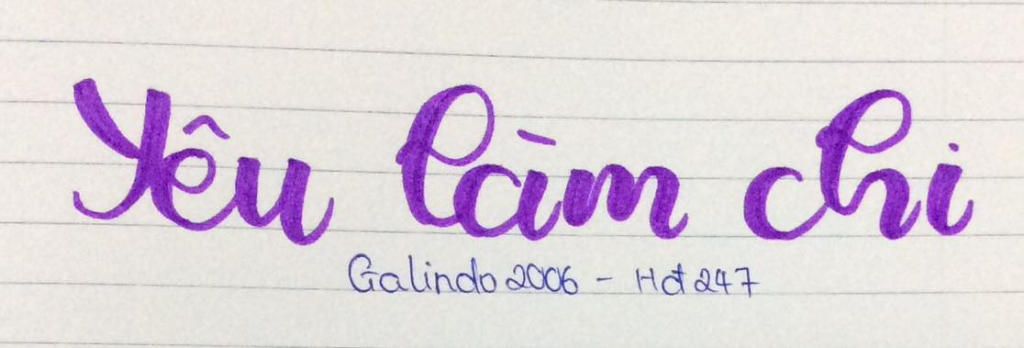 Yêu làm chi
Galindo2006 - Hđt247